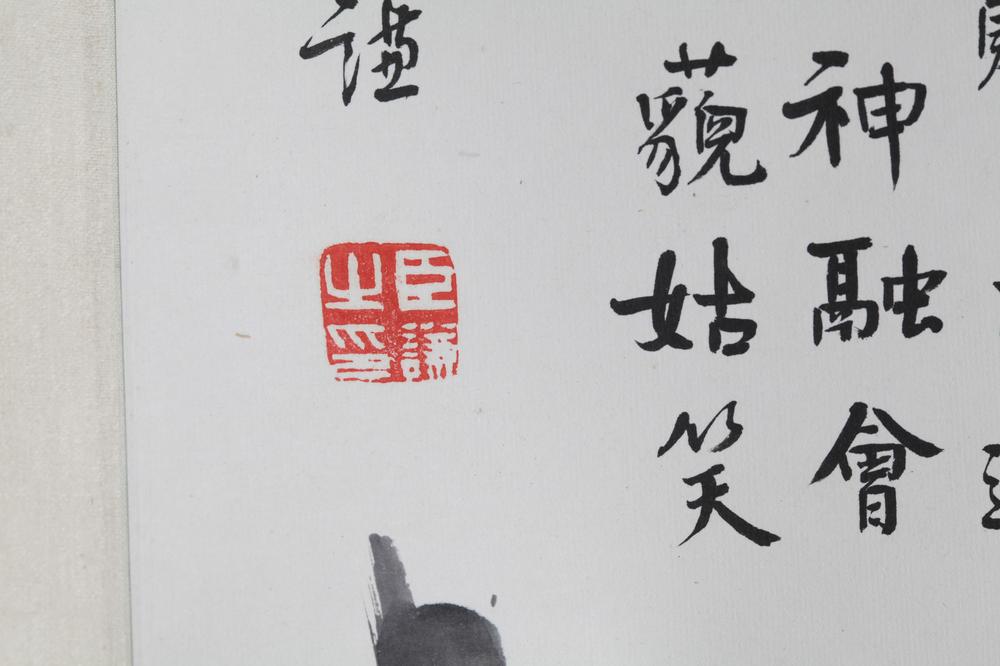 神融會
藐姑笑
謙
臣謙之印